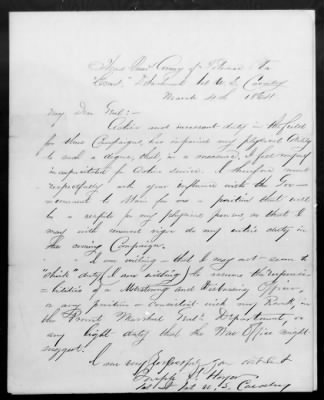 Head Quar's Army of Potomac Va
March 4th 1864
My Dear Genl:-
Active and incessant duty in the field
for three Campaigns, has impaired my physical ability
to such a degree, that, in a measure, I feel myself
incapacitated for active service. I therefore most
respectfully ask your influence with the Gov-
ernment to obtain for me a position that will
be a respite for my physical powers, so that I
may with renewed vigor do my entire duty in
the coming Campaign.
I am willing - that I may not seem to
"shirk" duty (I am willing) to assume the responsi-
bilities of a Mustering and Disbursing Officer,
or any position - consistent with my Rank, in
the Provost Marshal Genl's Department, or
any light duty that the War Office might
suggest.
I am very Respectfully Your obt Svt
Joseph
1st U. S. Cavalry